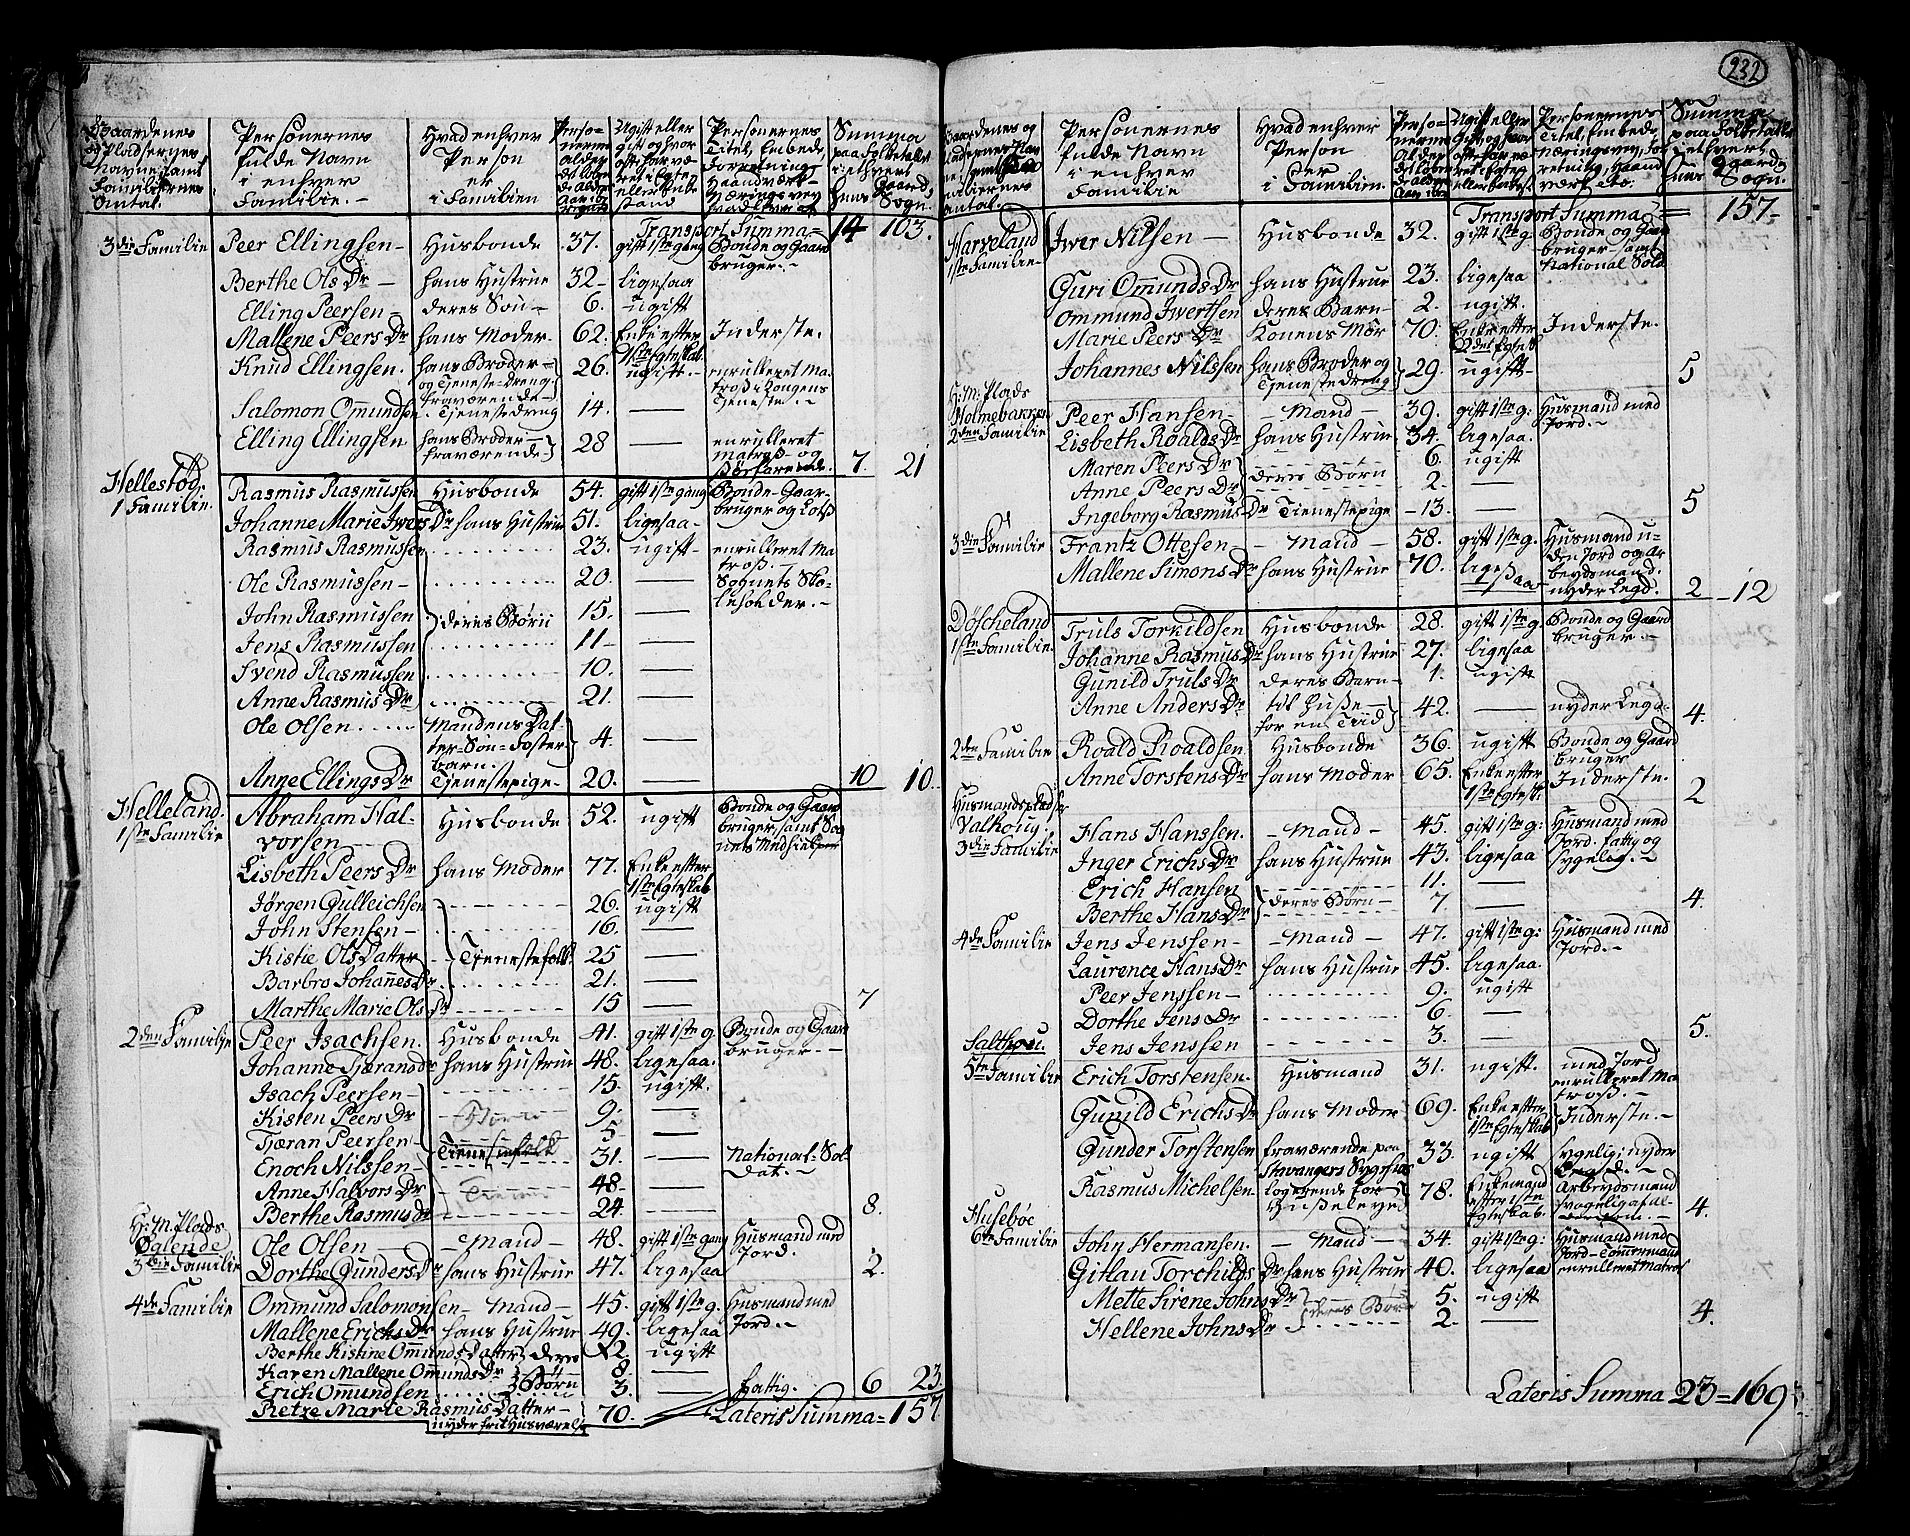 Gaardenes og Pladsernes Navne, samt Familiernes Antal.
Personernes fulde Navn i enhver Familie.
Hvad enhver Person er i Familien
Summa paa Folketallet i ethvert Huus Gaard Sogn.
Transport Summa = 14 103.
3die Familie Peer Ellingsen Husbonde 37. gift 1ste gang Bonde og Gaardbruger.
Berthe Ols Dr hans Hustrue 32 ligesaa
Elling Peersen deres Søn 6. ugift
Mallene Peers Dr hans Moder 62. Enke efter 1ste Egteskab. Inderste.
Knud Ellingsen. hans Broder og Tieneste-Dreng fraværende 26. ugift. enrulleret Matros i Kongens Tieneste.
Salomon Omundsen Tienestedreng 14. —
Elling Ellingsen hans Broder fraværende 28 — enrulleret matros og 7. 21
Hellestød. 1 Familie. Rasmus Rasmussen Husbonde 54. gift 1ste gang Bonde-Gaardbruger og Lots
Johanne Marie Iwers Dr hans Hustrue 51. ligesaa
Rasmus Rasmussen 23. ugift enrulleret Matros.
Ole Rasmussen 20. — Sognets Skoleholder.
John Rasmussen deres Børn 15. —
Jens Rasmussen 11 —
Svend Rasmussen 10. —
Anne Rasmus Dr 21. —
Ole Olsen Mandens Datter-Søn Fosterbarn. 4. —
Anne Ellings Dr Tienestepige 20. — 10 10.
Helleland. 1ste Familie Abraham Halvorsen Husbonde 52. ugift Bonde og Gaardbruger, samt Sognets Medhielper
Lisbeth Peers Dr hans Moder 77. Enke efter 1ste Egteskab
Jørgen Gulleichsen 26. ugift
John Stensen 16. —
Kistie Ols Datter Tienestefolk 25 —
Barbro Johanes Dr 21. —
Marthe Marie Ols Dr 15 — 7
2den Familie Peer Isachsen. Husbonde 41. gift 1ste g Bonde og Gaardbruger
Johanne Tjærands Dr hans Hustrue 48. ligesaa.
Isach Peersen 15. ugift.
Kisten Peers Dr Børn 9. —
Tjæran Peersen 5 —
Enoch Nilssen Tienestefolk 31. — National-Soldat.
Anne Halvors Dr 48 —
Berthe Rasmus Dr 24. — 8.
H: M: Plads Øglende 3die Familie Ole Olsen Mand 48. gift 1ste gang Husmand med Jord.
Dorthe Gunders Dr hans Hustrue 47. ligesaa 2.
4de Familie Ommund Salomonsen Mand 45. gift 1ste g. Husmand med Jord.
Mallene Erichs Dr hans Hustrue 49. ligesaa
Berthe Kistine Omunds Datter deres Børn 12. ugift
Karen Mallene Omunds Dr 8. —
Erich Omundsen 3. — fattig. 6 23.
Retze Marie Rasmus Datter nyder frit Husværelse 70. Lateris Summa = 157
232
Personernes fulde Navn i enhver Familie
Hvad enhver Person er i Familien.
Summa paa Folketallet i ethvert Huus Gaard Sogn.
Transport Summa = 157
Harveland 1ste Familie Iwer Nilsen Husbonde 32. gift 1ste g: Bonde og Gaardbruger samt National Sold
Guri Omunds Dr hans Hustrue 23. ligesaa
Ommund Iwertsen deres Barn 2. ugift.
Marie Peers Dr Konens Mor 70. Enke efter 2det Egtesk Inderste.
Johannes Nilssen hans Broder og Tienestedreng 29. ugift 5
H: M: Plads Holmebakken 2den Familie Peer Hansen Mand 39. gift 1ste g: Husmand med Jord.
Lisbeth Roalds Dr hans Hustrue 34. ligesaa.
Maren Peers Dr deres Børn 6. ugift
Anne Peers Dr 2. —
Ingeborg Rasmus Dr Tienestepige 13. — 5
3die Familie Frantz Ottesen Mand 58. gift 1ste g. Husmand uden Jord og Arbeydsmand.
Mallene Simons Dr hans Hustrue 70. ligesaa nyder Legd. 2 12
Døscheland 1ste Familie Truls Torkildsen Husbonde 28. gift 1ste g Bonde og Gaardbruger.
Johanne Rasmus Dr hans Hustrue 27. ligesaa
Gunild Truls Dr deres Barn 1. ugift
Anne Anders Dr til Huse for en Tiid 42. — nyder Legd. 4.
2den Familie Roald Roaldsen Husbonde 36. ugift Bonde og Gaardbruger
Anne Torstens Dr hans Moder 65. Enke efter 1ste Egtesk. Inderste. 2
Husmandspladser Valhoug. 3die Familie Hans Hanssen. Mand 45. gift 1ste g: Husmand med Jord. fattig og sygelig.
Inger Erichs Dr hans Hustrue 43. ligesaa
Erich Hansen deres Børn 11. —
Berthe Hans Dr 7 — 4.
4de Familie Jens Jenssen Mand 47. gift 1ste g: Husmand med Jord.
Laurence Hans Dr hans Hustrue 45. ligesaa.
Peer Jenssen 9. ugift
Dorthe Jens Dr 6. —
Jens Jenssen 3. — 5.
Salthou. 5te Familie Erich Torstensen. Husmand 31. ugift. med Jord enrulleret Matros.
Gunild Erichs Dr hans Moder 69. Enke efter 1ste Egteskab Inderste.
Gunder Torstensen fraværende paa Stavangers Sygehus 33. ugift sygelig; nyder
Rasmus Michelsen logerende for Husseleyed 78. Enkemand efter 1ste Egteskab. Arbeydsmand 4.
Husebøe 6te Familie John Hermansen. Mand 34. gift 1ste g: Husmand med Jord Tømmermand enrulleret Matros
Gitlau Torchilds Dr hans Hustrue 40. ligesaa
Mette Sirene Johns Dr deres Børn 5. ugift
Hellene Johns Dr 2. — 4.
Lateris Summa 23 = 169